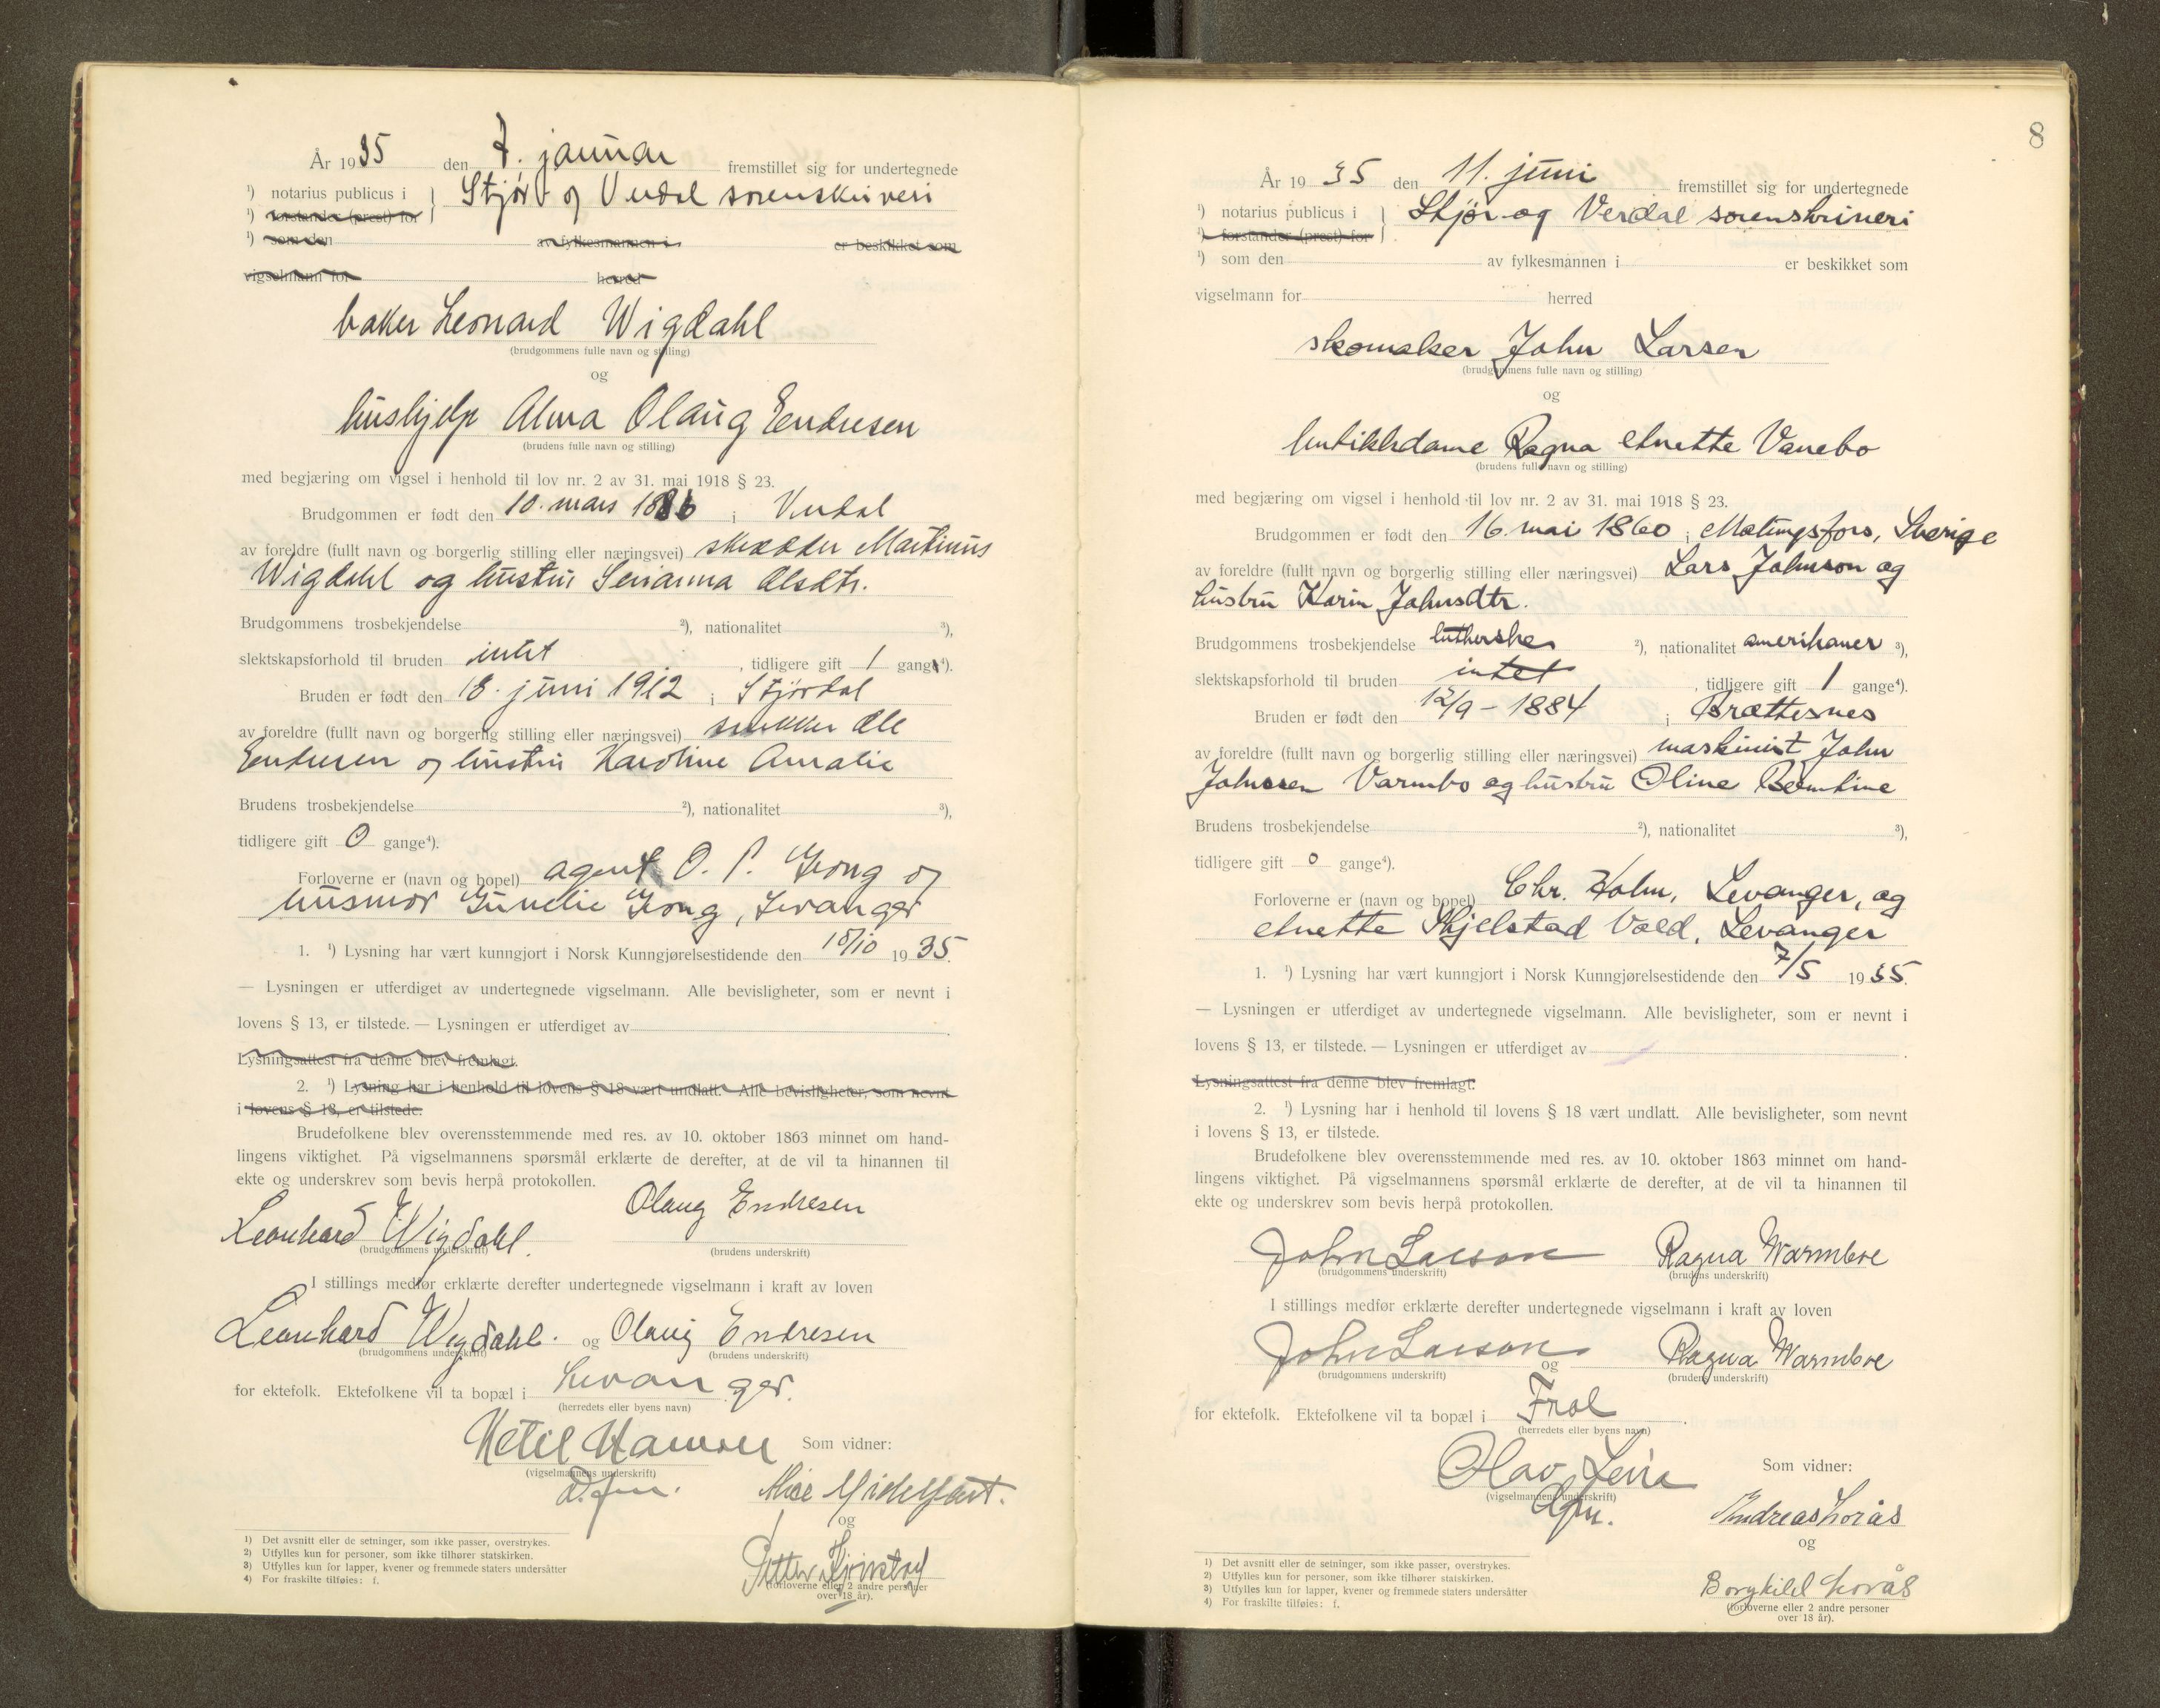 År 1935 den 7. januar fremstillet sig for undertegnede
¹) notarius publicus i } Stjør og Verdal sorenskriveri
¹) forstander (prest) for
¹) som den av fylkesmannen i er beskikket som
vigselmann for herred
baker Leonard Wigdahl
(brudgommens fulle navn og stilling)
og
hushjelp Alma Olaug Endresen
(brudens fulle navn og stilling)
med begjæring om vigsel i henhold til lov nr. 2 av 31. mai 1918 § 23.
Brudgommen er født den 10. mars 1886 i Verdal
av foreldre (fullt navn og borgerlig stilling eller næringsvei) skredder Martinus
Wigdahl og hustru Serianna Olsdtr.
Brudgommens trosbekjendelse ²), nationalitet ³),
slektskapsforhold til bruden intet , tidligere gift 1 gang ⁴).
Bruden er født den 18. juni 1912 i Stjørdal
av foreldre (fullt navn og borgerlig stilling eller næringsvei) snekker Ole
Endresen og hustru Karoline Amalie
Brudens trosbekjendelse ²), nationalitet ³),
tidligere gift 0 gange⁴).
Forloverne er (navn og bopel) agent O. P. Grong og
husmor Gunelie Grong, Levanger
1. ¹) Lysning har vært kunngjort i Norsk Kunngjørelsestidende den 18/10 1935.
— Lysningen er utferdiget av undertegnede vigselmann. Alle bevisligheter, som er nevnt i
lovens § 13, er tilstede. — Lysningen er utferdiget av .
Lysningsattest fra denne blev fremlagt.
2. ¹) Lysning har i henhold til lovens § 18 vært undlatt. Alle bevisligheter, som nevnt
i lovens § 13, er tilstede.
Brudefolkene blev overensstemmende med res. av 10. oktober 1863 minnet om hand-
lingens viktighet. På vigselmannens spørsmål erklærte de derefter, at de vil ta hinannen til
ekte og underskrev som bevis herpå protokollen.
Leonhard Wigdahl. Olaug Endresen
(brudgommens underskrift) (brudens underskrift)
I stillings medfør erklærte derefter undertegnede vigselmann i kraft av loven
Leonhard Wigdahl. og Olaug Endresen
(brudgommens underskrift) (brudens underskrift)
for ektefolk. Ektefolkene vil ta bopæl i Levanger.
(herredets eller byens navn)
Ketil Hanssen Som vidner:
(vigselmannens underskrift)
D.fm. Alice Midelfart.
og
Petter
(forloverne eller 2 andre personer
over 18 år).
1) Det avsnitt eller de setninger, som ikke passer, overstrykes.
2) Utfylles kun for personer, som ikke tilhører statskirken.
3) Utfylles kun for lapper, kvener og fremmede staters undersåtter
4) For fraskilte tilføies: f.
8
År 1935 den 11. juni fremstillet sig for undertegnede
¹) notarius publicus i } Stjør- og Verdal sorenskriveri
¹) forstander (prest) for
¹) som den av fylkesmannen i er beskikket som
vigselmann for herred
skomaker John Larsen
(brudgommens fulle navn og stilling)
og
butikkdame Ragna Anette Vanebo
(brudens fulle navn og stilling)
med begjæring om vigsel i henhold til lov nr. 2 av 31. mai 1918 § 23.
Brudgommen er født den 16. mai 1860 i Mølingsfors, Sverige
av foreldre (fullt navn og borgerlig stilling eller næringsvei) Lars Johnson og
hustru Karin Johnsdtr.
Brudgommens trosbekjendelse lutherske ²), nationalitet amerikaner ³),
slektskapsforhold til bruden intet , tidligere gift 1 gange⁴).
Bruden er født den 12/9 - 1884 i Brættesnes
av foreldre (fullt navn og borgerlig stilling eller næringsvei) maskinist John
Johnsen Varmbo og hustru Oline Berntine
Brudens trosbekjendelse ²), nationalitet ³),
tidligere gift 0 gange⁴).
Forloverne er (navn og bopel) Chr. Holm, Levanger, og
Anette Skjelstad Vold, Levanger
1. ¹) Lysning har vært kunngjort i Norsk Kunngjørelsestidende den 7/5 1935.
— Lysningen er utferdiget av undertegnede vigselmann. Alle bevisligheter, som er nevnt i
lovens § 13, er tilstede. — Lysningen er utferdiget av .
Lysningsattest fra denne blev fremlagt.
2. ¹) Lysning har i henhold til lovens § 18 vært undlatt. Alle bevisligheter, som nevnt
i lovens § 13, er tilstede.
Brudefolkene blev overensstemmende med res. av 10. oktober 1863 minnet om hand-
lingens viktighet. På vigselmannens spørsmål erklærte de derefter, at de vil ta hinannen til
ekte og underskrev som bevis herpå protokollen.
John Larson Ragna Warmboe
(brudgommens underskrift) (brudens underskrift)
I stillings medfør erklærte derefter undertegnede vigselmann i kraft av loven
John Larson og Ragna Warmboe
(brudgommens underskrift) (brudens underskrift)
for ektefolk. Ektefolkene vil ta bopæl i Frol .
(herredets eller byens navn)
Olav Leira Som vidner:
(vigselmannens underskrift)
dfm. Andreas Lorås
og
Borghild Lorås
(forloverne eller 2 andre personer
over 18 år).
1) Det avsnitt eller de setninger, som ikke passer, overstrykes.
2) Utfylles kun for personer, som ikke tilhører statskirken.
3) Utfylles kun for lapper, kvener og fremmede staters undersåtter
4) For fraskilte tilføies: f.